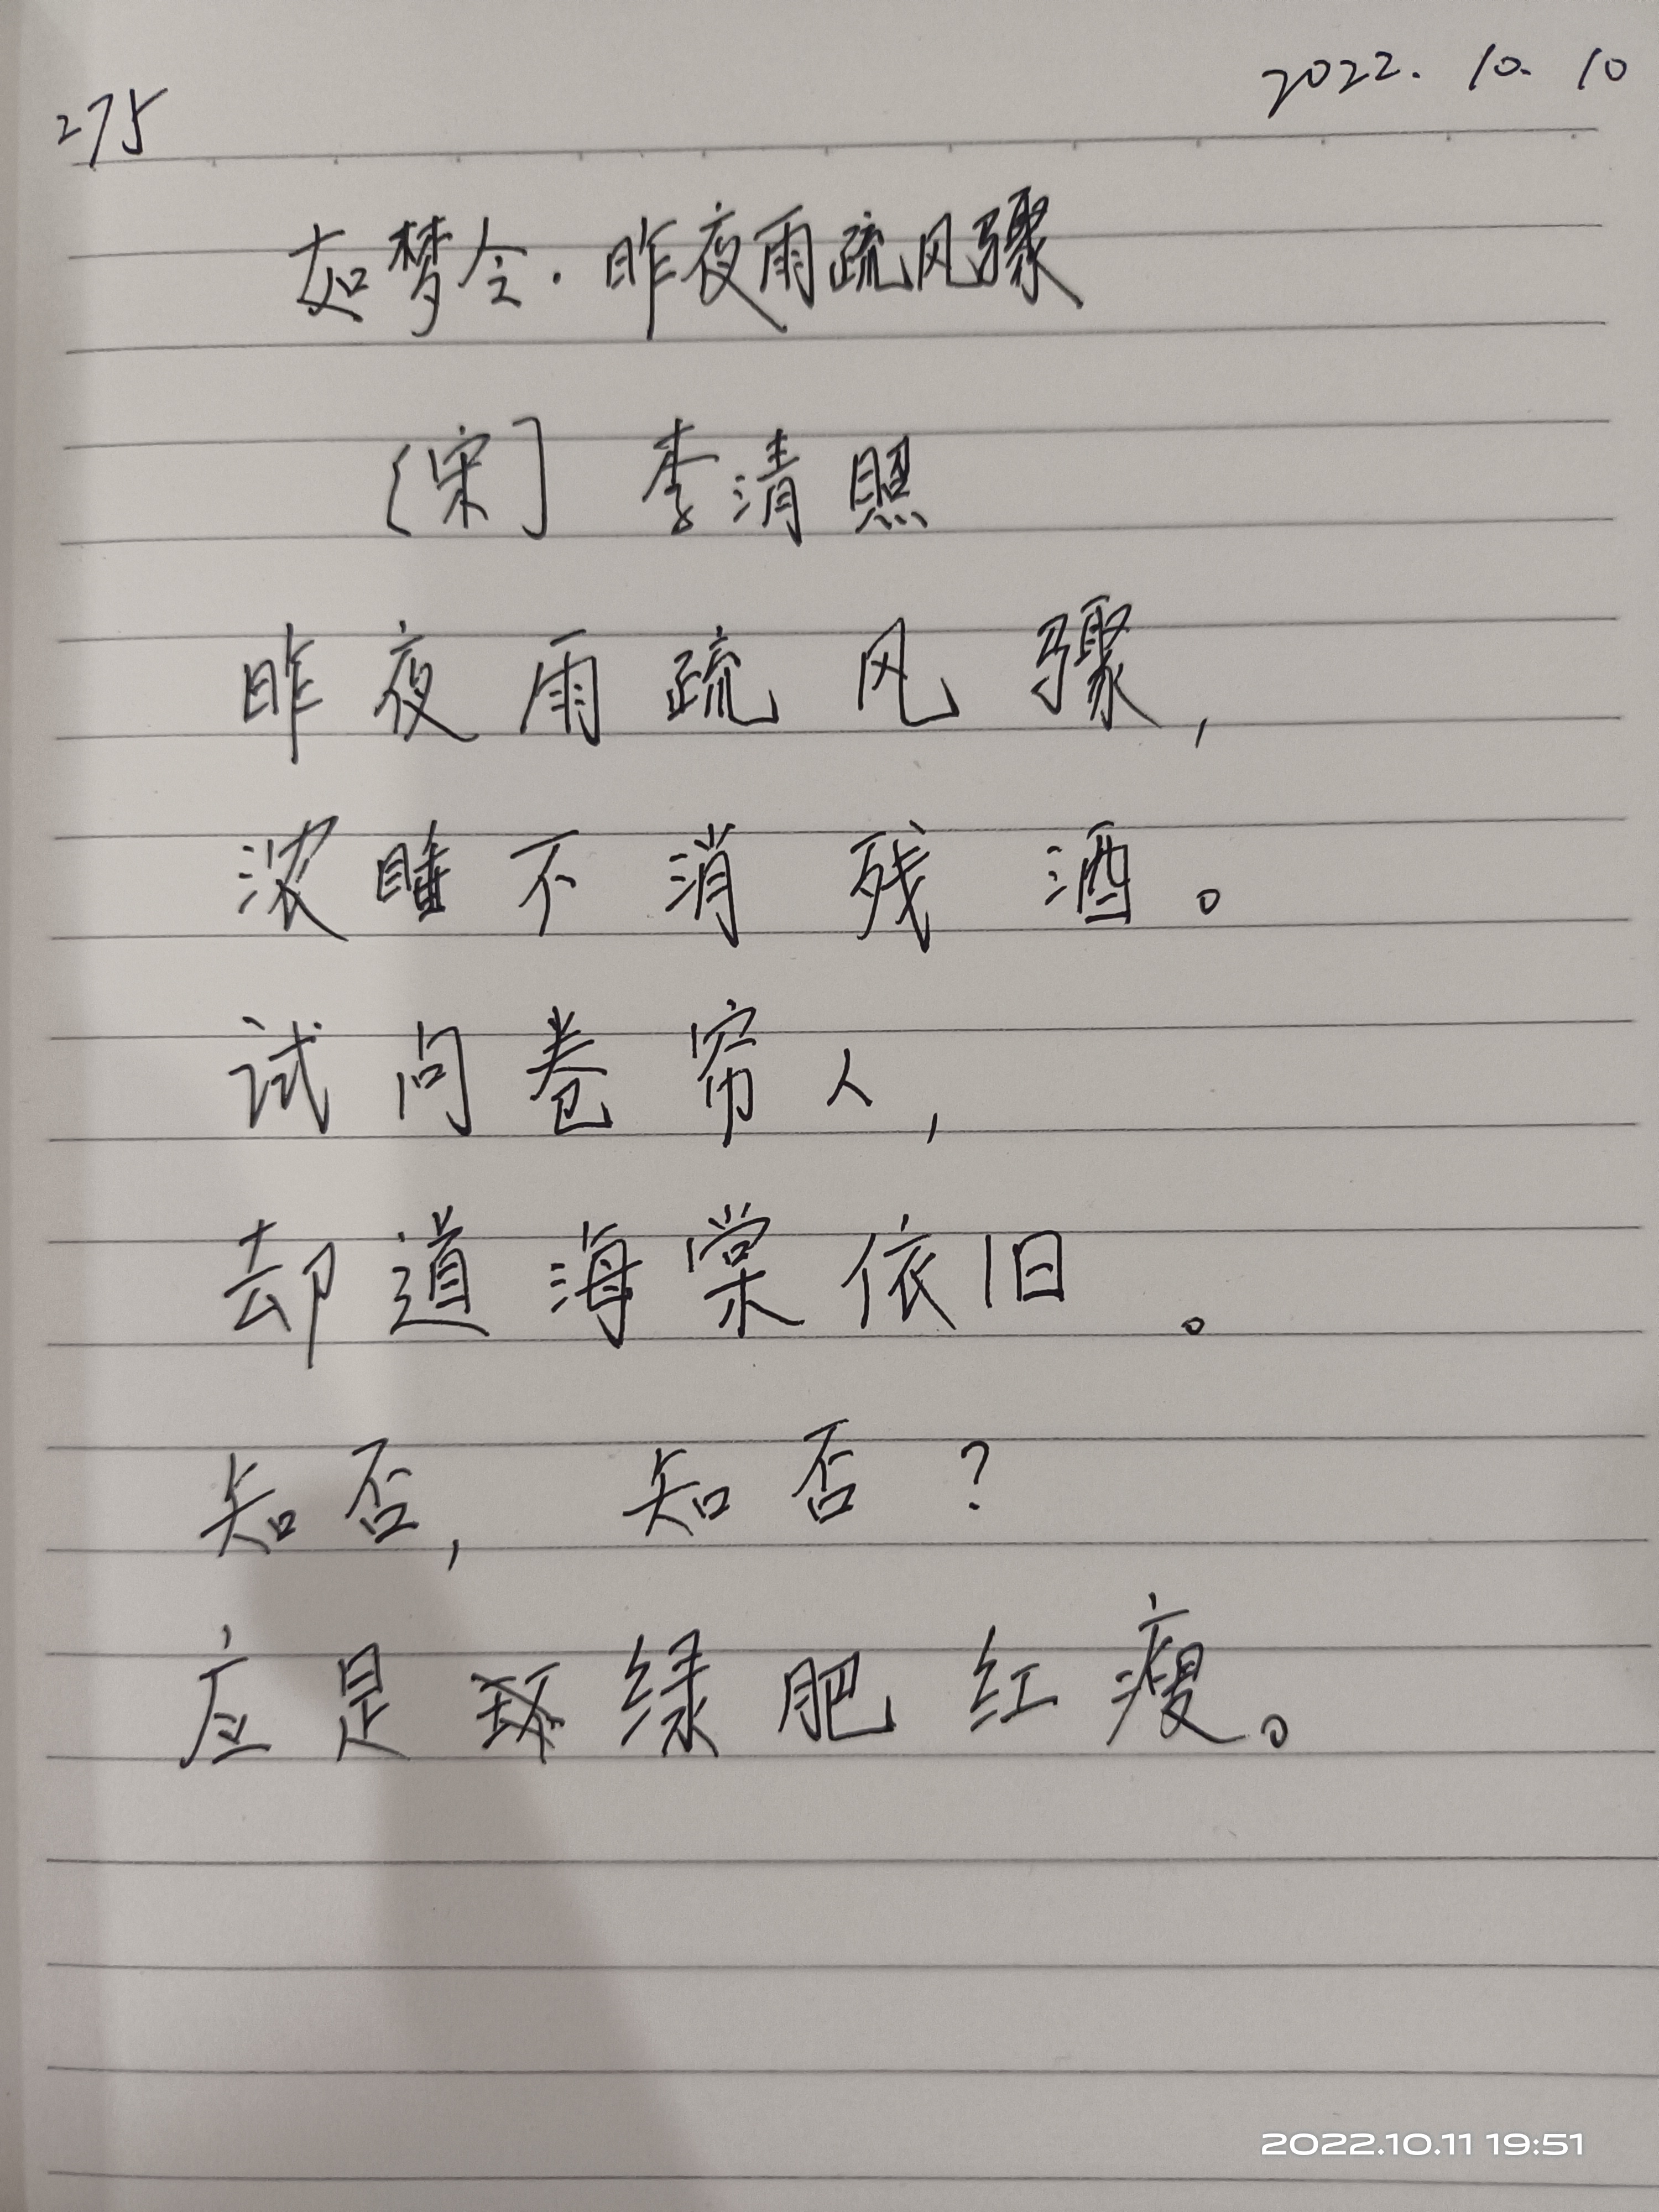 275
2022.10.10
如梦令·昨夜雨疏风骤
[宋] 李清照
昨夜雨疏风骤,
浓睡不消残酒。
试问卷帘人,
却道海棠依旧。
知否,知否?
应是绿肥红瘦。
2022.10.11 19:51